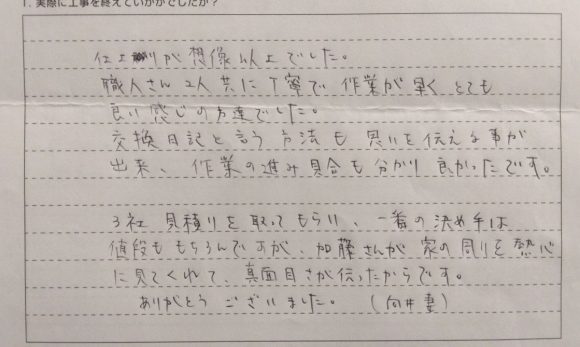 1. 実際に工事を終えていかがでしたか？
仕上りが想像以上でした。
職人さん2人共に丁寧で作業が早くとても
良い感じの方達でした。
交換日記と言う方法も思いを伝える事が
出来、作業の進み具合も分かり良かったです。
3社見積りを取ってもらい、一番の決め手は
値段ももちろんですが、加藤さんが家の周りを熱心
に見てくれて、真面目さが伝ったからです。
ありがとうございました。（向井妻）